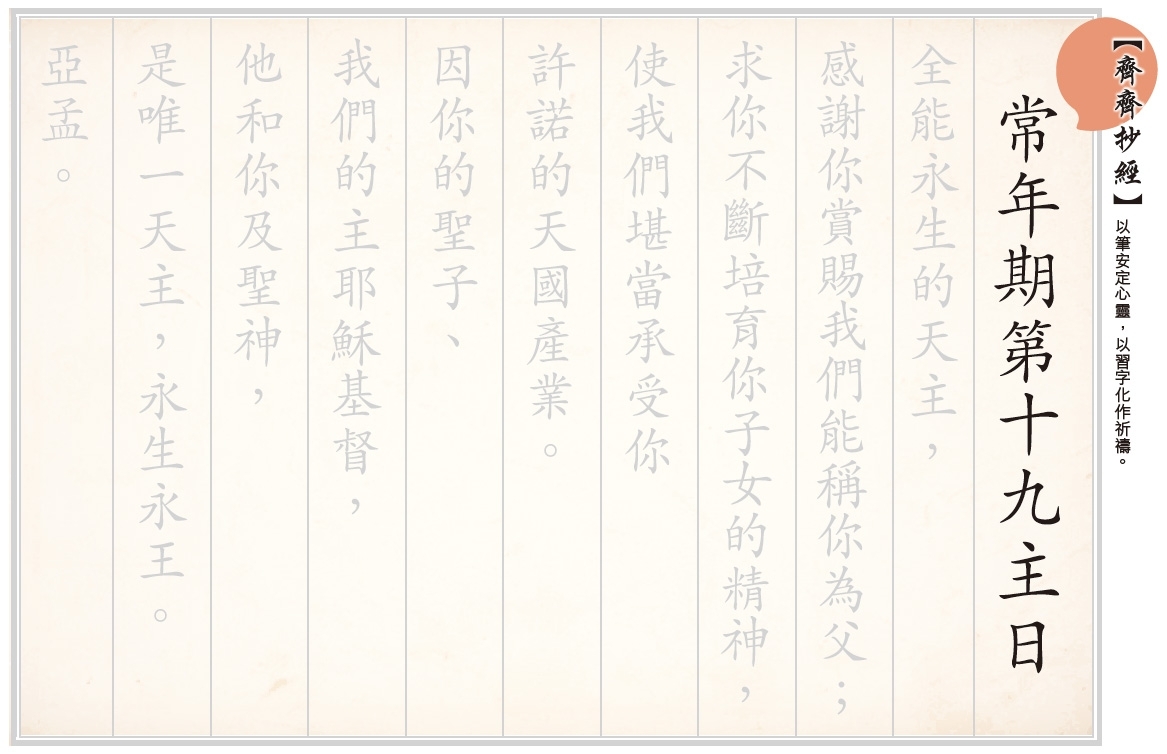 【齊齊抄經】以筆安定心靈，以習字化作祈禱。
常年期第十九主日
全能永生的天主，
感謝你賞賜我們能稱你為父；
求你不斷培育你子女的精神，
使我們堪當承受你
許諾的天國產業。
因你的聖子、
我們的主耶穌基督，
他和你及聖神，
是唯一天主，永生永王。
亞孟。